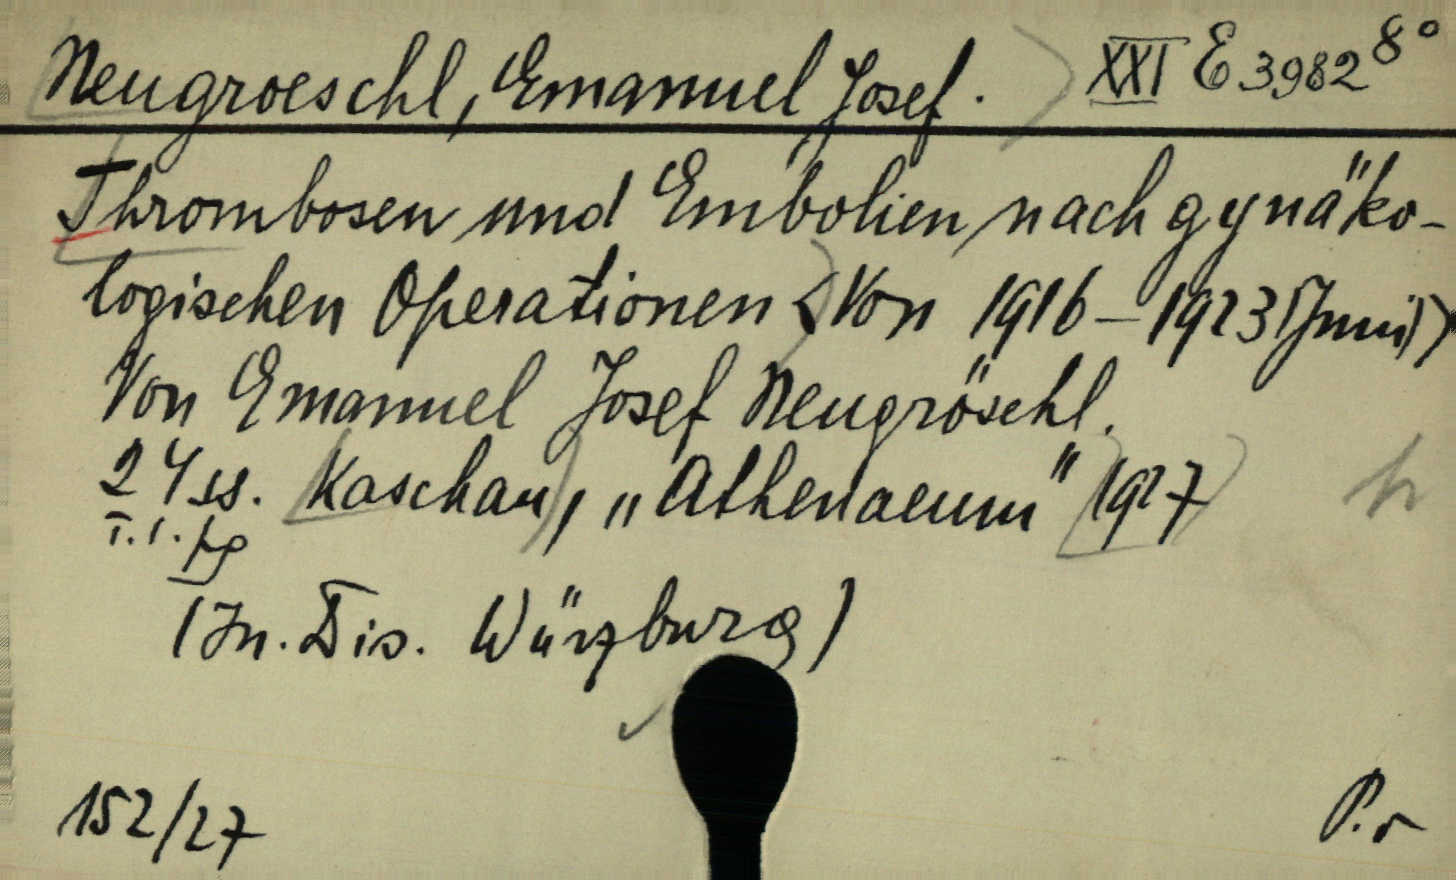 Neugroeschl, Emanuel Josef. XXI E 3982 8°
Thrombosen und Embolien nach gynäko-
logischen Operationen <Von 1916-1923 (Juni)>
Von Emanuel Josef Neugröschl.
24 ss. Kaschau, „Athenaeum" 1927
(In. Dis. Würzburg)
152/27 P. r